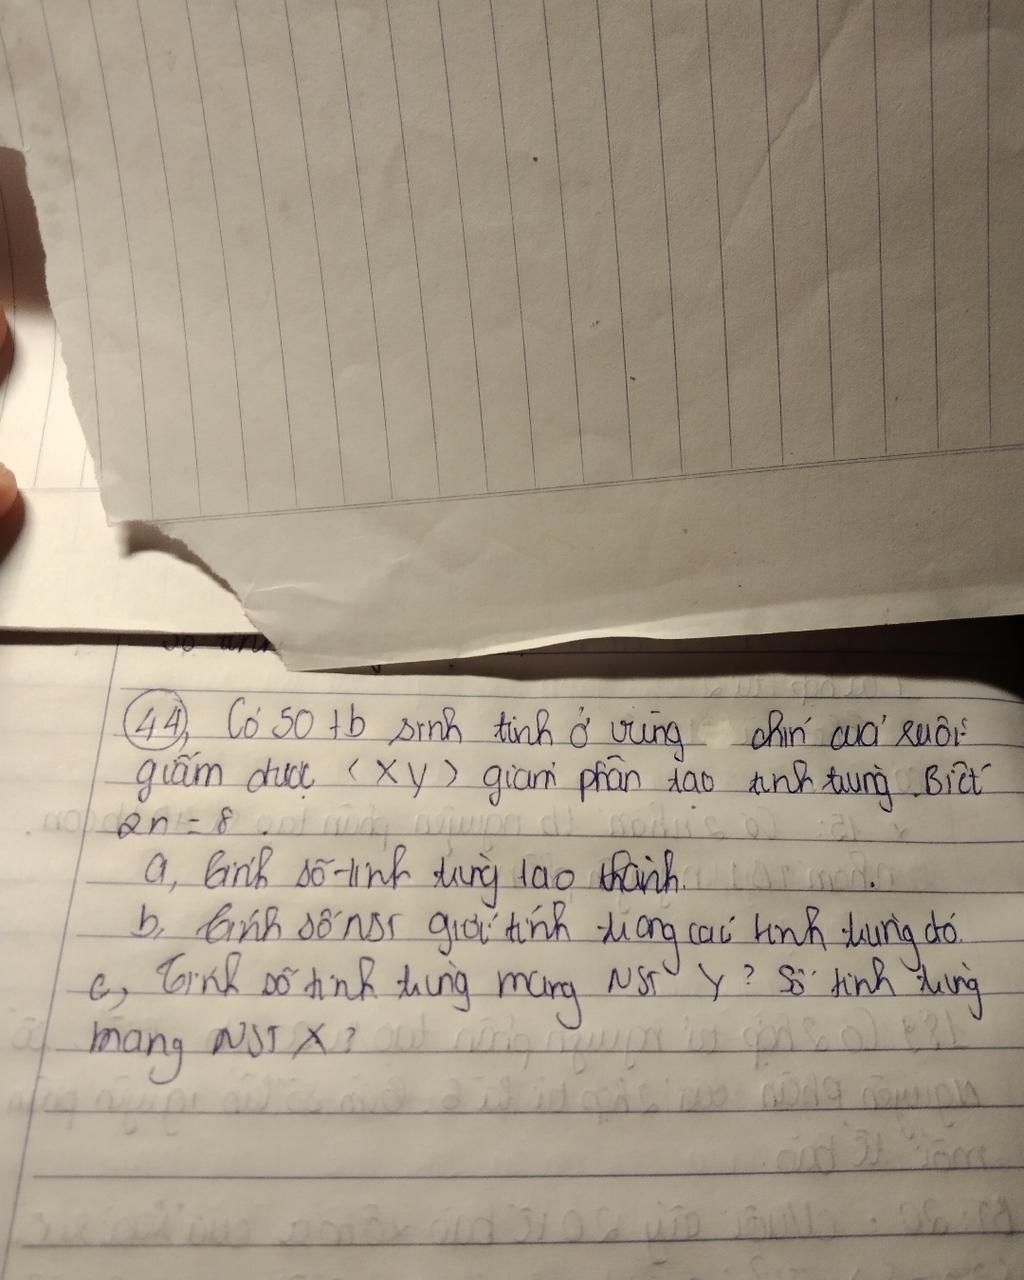 44, Có 50 tb sinh tinh ở vùng chín của ruồi
giấm đực (XY) giảm phân tạo tinh trùng. Biết
2n = 8.
a, tính số tinh trùng tạo thành.
b, tính số NST giới tính trong các tinh trùng đó.
c, Tính số tinh trùng mang NST Y? Số tinh trùng
mang NST X?